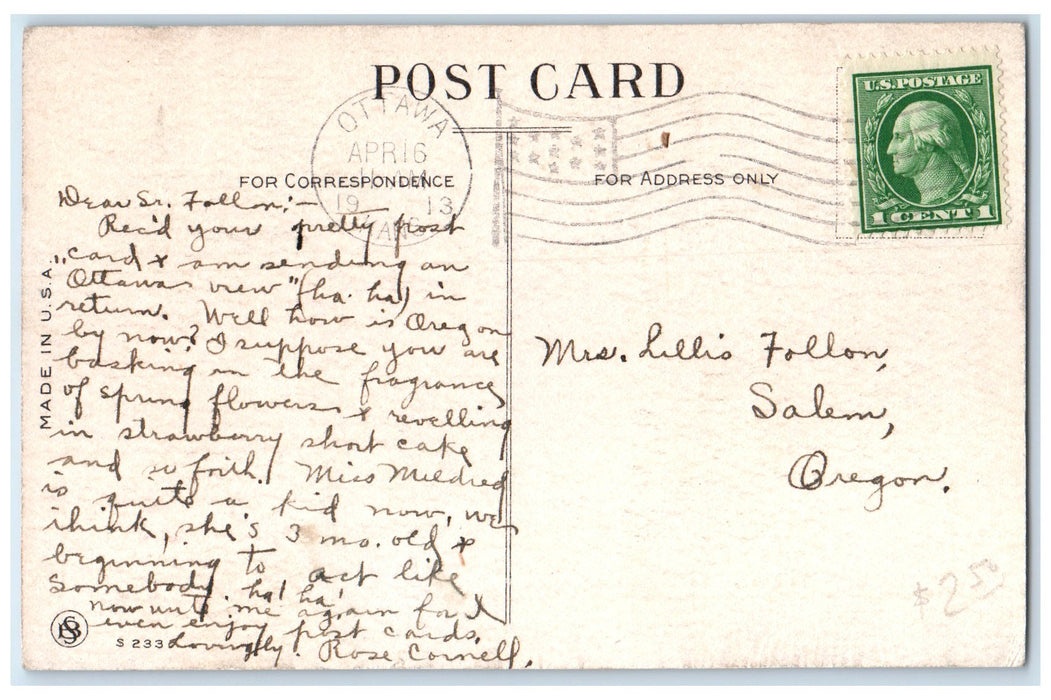 POST CARD
U.S. POSTAGE
1 CENT 1
OTTAWA
APR 16
19 13
KANS
FOR CORRESPONDENCE
FOR ADDRESS ONLY
Dear Sr. Follon:—
Rec'd your pretty post
card & am sending an
"Ottawa view" (ha. ha) in
return. Well how is Oregon
by now? I suppose you are
basking in the fragrance
of spring flowers & revelling
in strawberry short cake
and so forth. Miss Mildred
is quite a kid now, we
think, she's 3 mo. old &
beginning to act like
somebody. ha! ha!
now write me again for I
even enjoy post cards.
Lovingly. Rose Cornell.
Mrs. Lillis Follon,
Salem,
Oregon.
MADE IN U.S.A.
S 233
$2.50